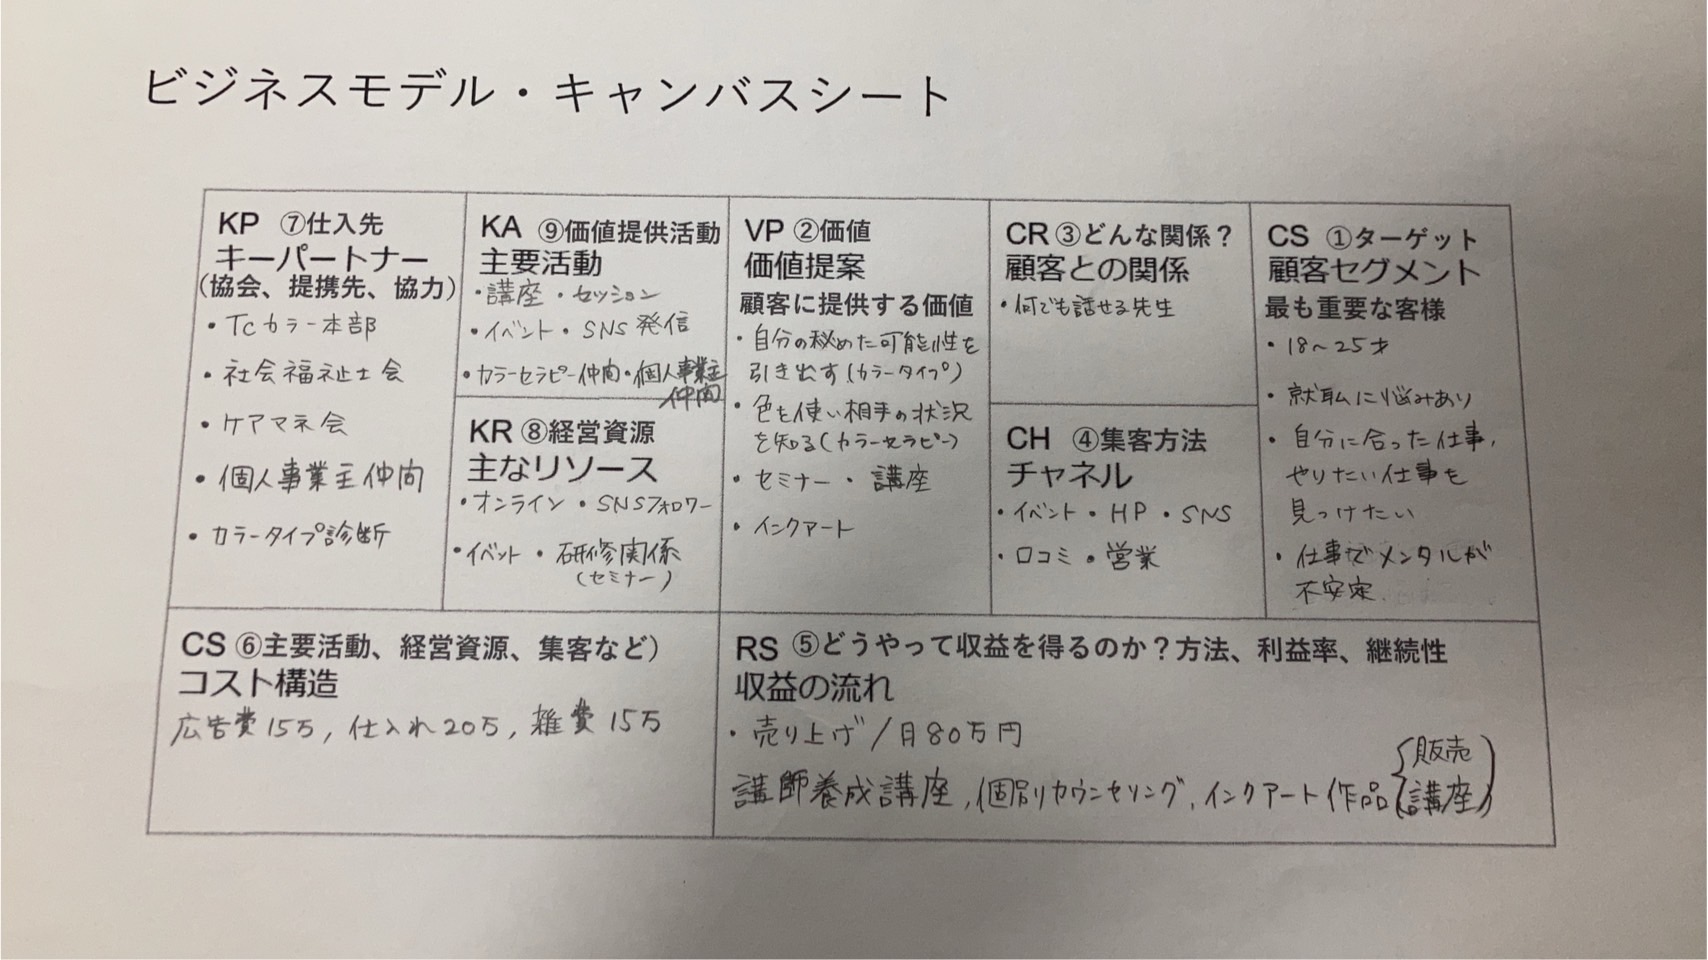 ビジネスモデル・キャンバスシート
KP ⑦仕入先
キーパートナー
(協会、提携先、協力)
・TCカラー本部
・社会福祉士会
・ケアマネ会
・個人事業主仲間
・カラータイプ診断
KA ⑨価値提供活動
主要活動
・講座・セッション
・イベント・SNS発信
・カラーセラピー仲間・個人事業主
仲間
KR ⑧経営資源
主なリソース
・オンライン・SNSフォロワー
・イベント・研修関係
(セミナー)
VP ②価値
価値提案
顧客に提供する価値
・自分の秘めた可能性を
引き出す(カラータイプ)
・色を使い相手の状況
を知る(カラーセラピー)
・セミナー・講座
・インクアート
CR ③どんな関係？
顧客との関係
・何でも話せる先生
CH ④集客方法
チャネル
・イベント・HP・SNS
・口コミ・営業
CS ①ターゲット
顧客セグメント
最も重要な客様
・18〜25才
・就職に悩みあり
・自分に合った仕事,
やりたい仕事を
見つけたい
・仕事でメンタルが
不安定
CS ⑥主要活動、経営資源、集客など）
コスト構造
広告費15万,仕入れ20万,雑費15万
RS ⑤どうやって収益を得るのか？方法、利益率、継続性
収益の流れ
・売り上げ/月80万円
講師養成講座,個別カウンセリング,インクアート作品(販売
講座)